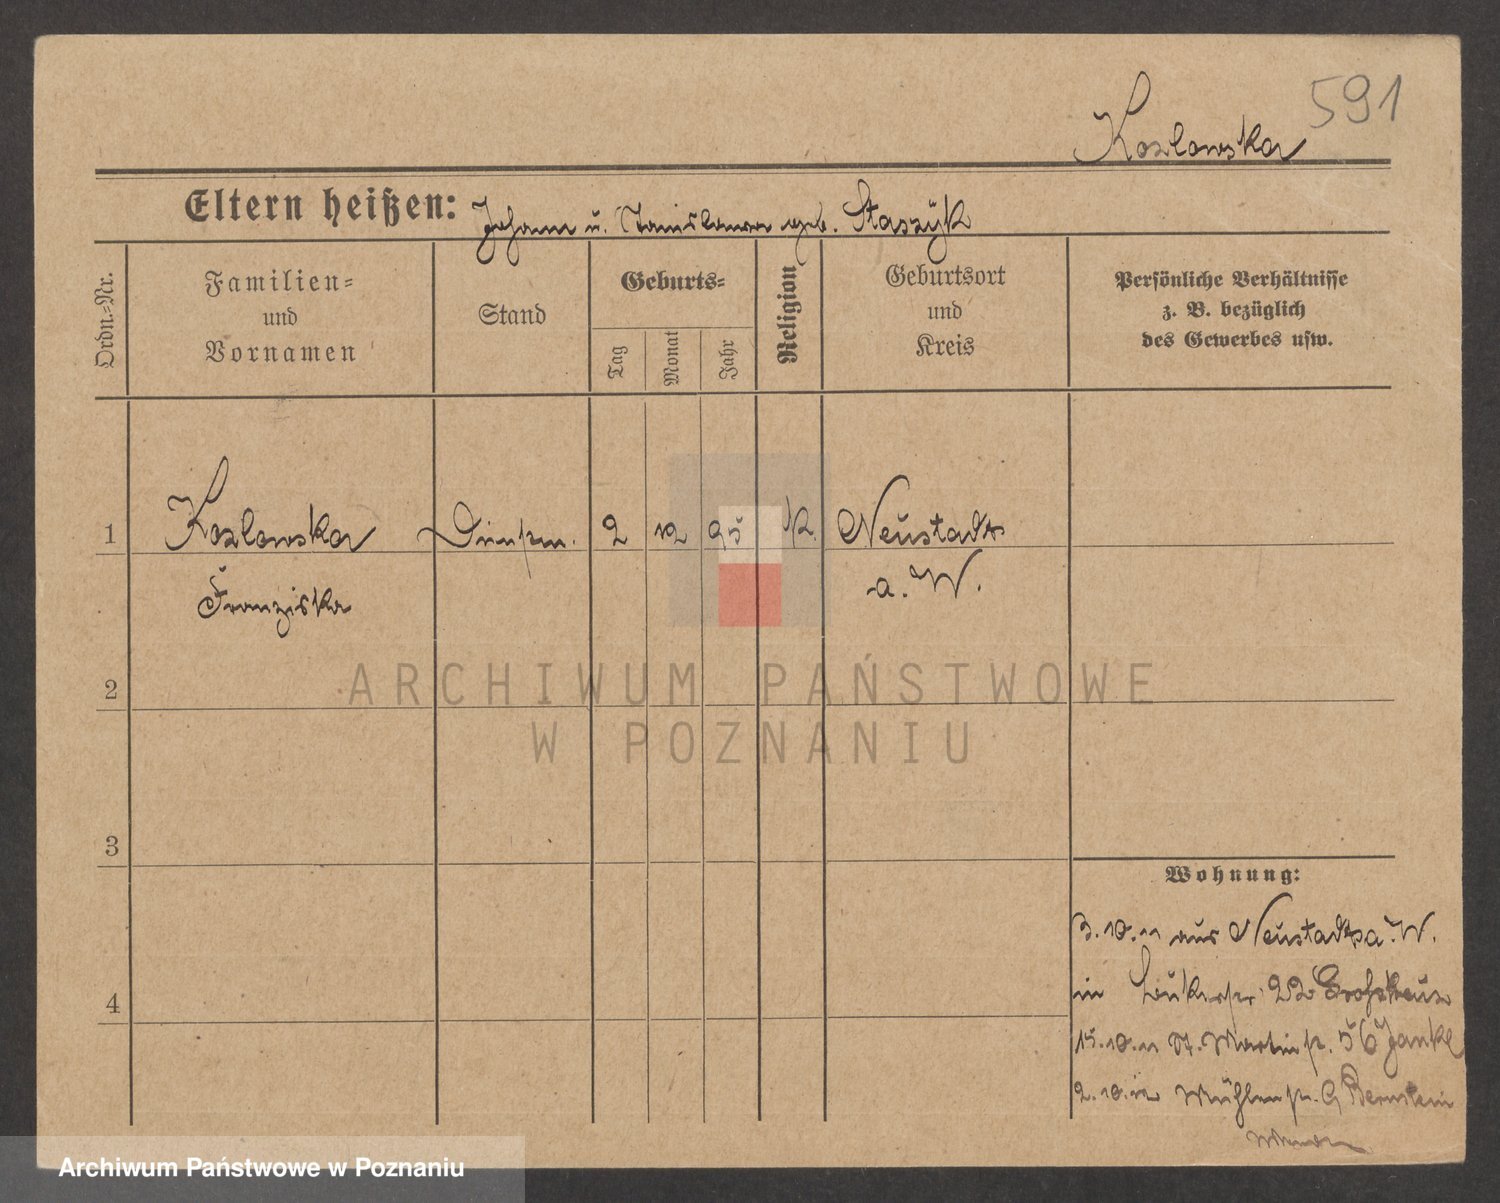 591
Kozlowska
Eltern heißen: Johann u. Stanislawa geb. Staszyk
Ordn.-Nr.
Familien-
und
Vornamen
Stand
Geburts-
Tag
Monat
Jahr
Religion
Geburtsort
und
Kreis
Persönliche Verhältnisse
z. B. bezüglich
des Gewerbes usw.
1 Kozlowska 2 12 95 k. Neustadt
Franziska a. W.
2
3
4
Wohnung:
3.10.11 aus Neustadt a. W.
in 22
15.10.11 St. Martinstr. 56 Jankl
2.10.12 Mühlenstr. 9 Bernstein
ARCHIWUM PAŃSTWOWE
W POZNANIU
Archiwum Państwowe w Poznaniu